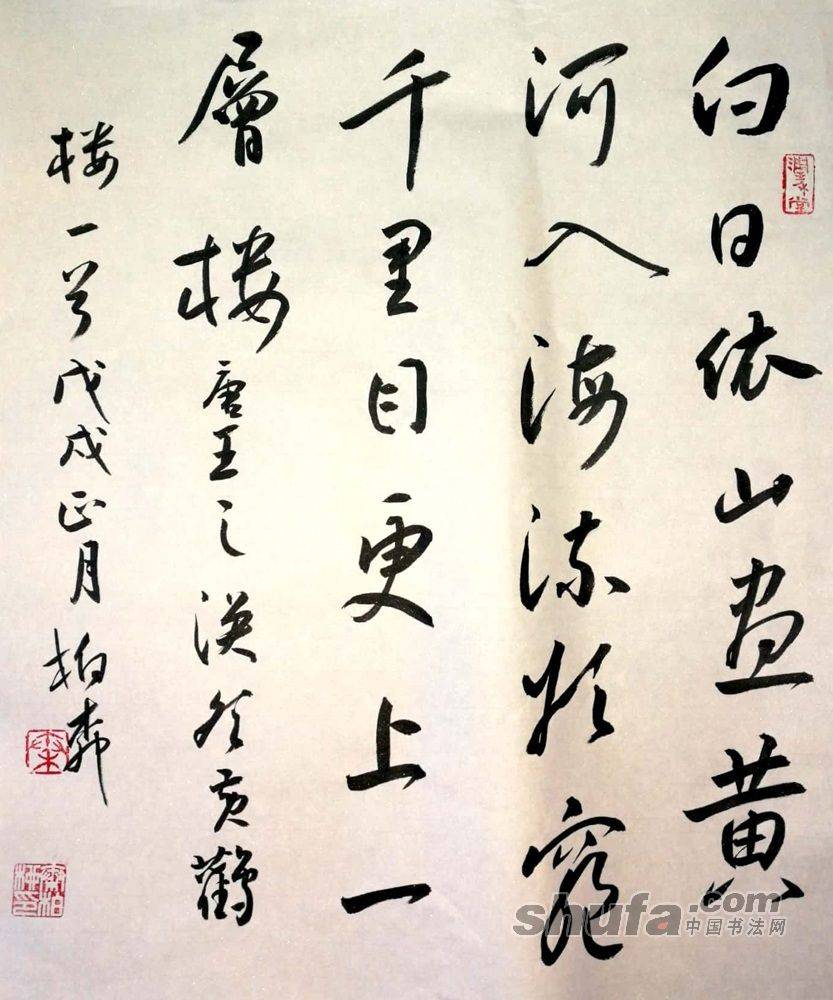 白日依山盡黄
河入海流欲窮
千里目更上一
層樓 唐王之渙登黄鶴
樓一首 戊戌正月 柏
shufa.com
中国书法网